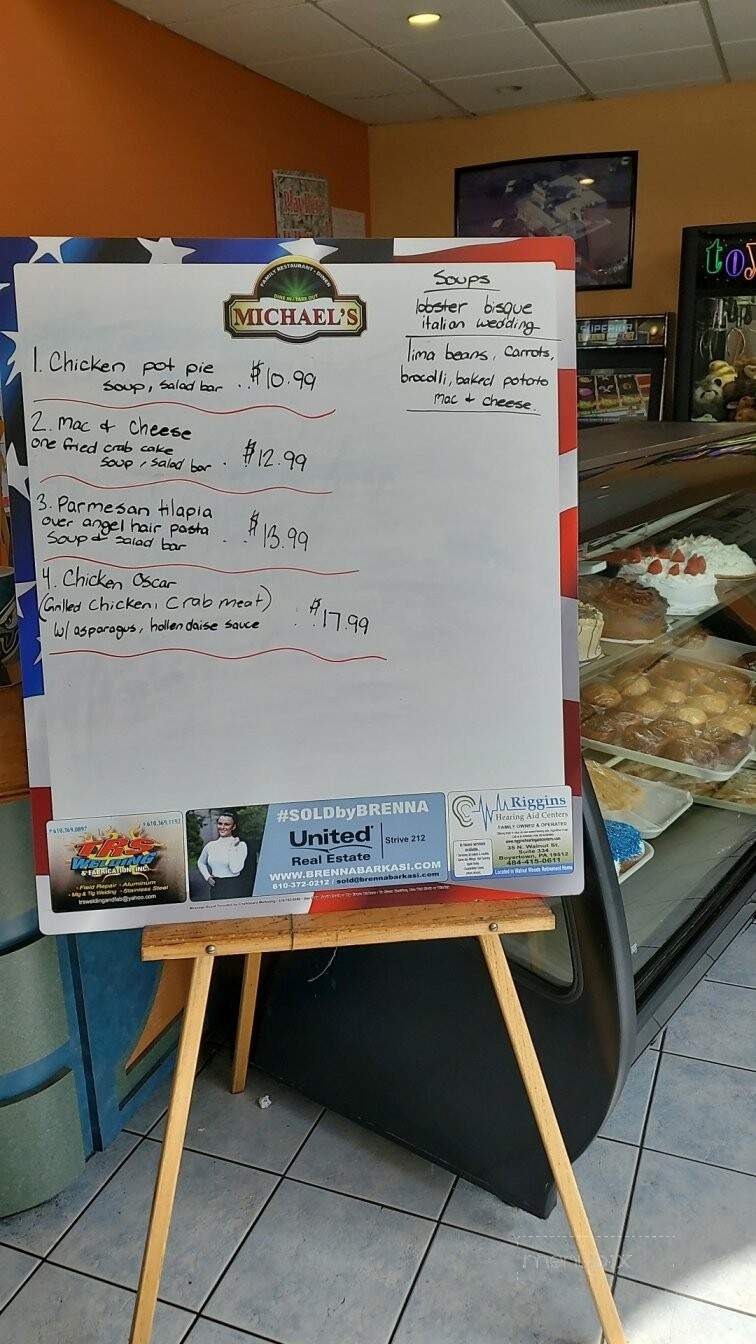 FAMILY RESTAURANT • DINER
DINE IN • TAKE OUT
MICHAEL'S
1. Chicken pot pie
soup, salad bar . . $10.99
2. Mac & Cheese
one fried crab cake
soup, salad bar . . $12.99
3. Parmesan tilapia
over angel hair pasta
soup & salad bar . . $13.99
4. Chicken Oscar
(Grilled Chicken, Crab meat)
w/ asparagus, hollendaise sauce . . $17.99
Soups
lobster bisque
italian wedding
lima beans, carrots,
brocolli, baked potato
mac & cheese.
SUPERIOR
toy
610.369.0897
TRS
WELDING
& FABRICATION INC.
Field Repair - Aluminum
Mig & Tig Welding - Stainless Steel
trsweldingandfab@yahoo.com
#SOLDbyBRENNA
United
Real Estate
Strive 212
WWW.BRENNABARKASI.COM
610-372-0212 / sold@brennabarkasi.com
Riggins
Hearing Aid Centers
FAMILY OWNED & OPERATED
35 N. Walnut St.
Suite 334
Boyertown, PA 19512
484-415-0611
Located in Walnut Woods Retirement Home
menupix